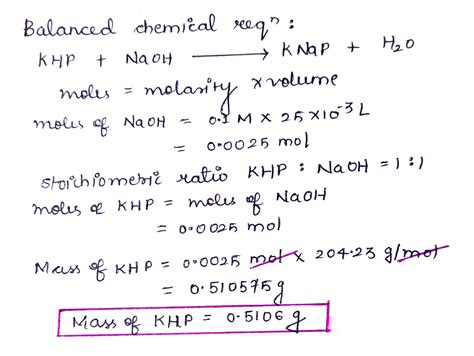 Balanced chemical reqⁿ :
KHP + NaOH ⟶ KNaP + H₂O
moles = molarity × volume
moles of NaOH = 0.1 M × 25 × 10⁻³ L
= 0.0025 mol
stoichiometric ratio KHP : NaOH = 1 : 1
moles of KHP = moles of NaOH
= 0.0025 mol
Mass of KHP = 0.0025 mol × 204.23 g/mol
= 0.510575 g
Mass of KHP = 0.5106 g